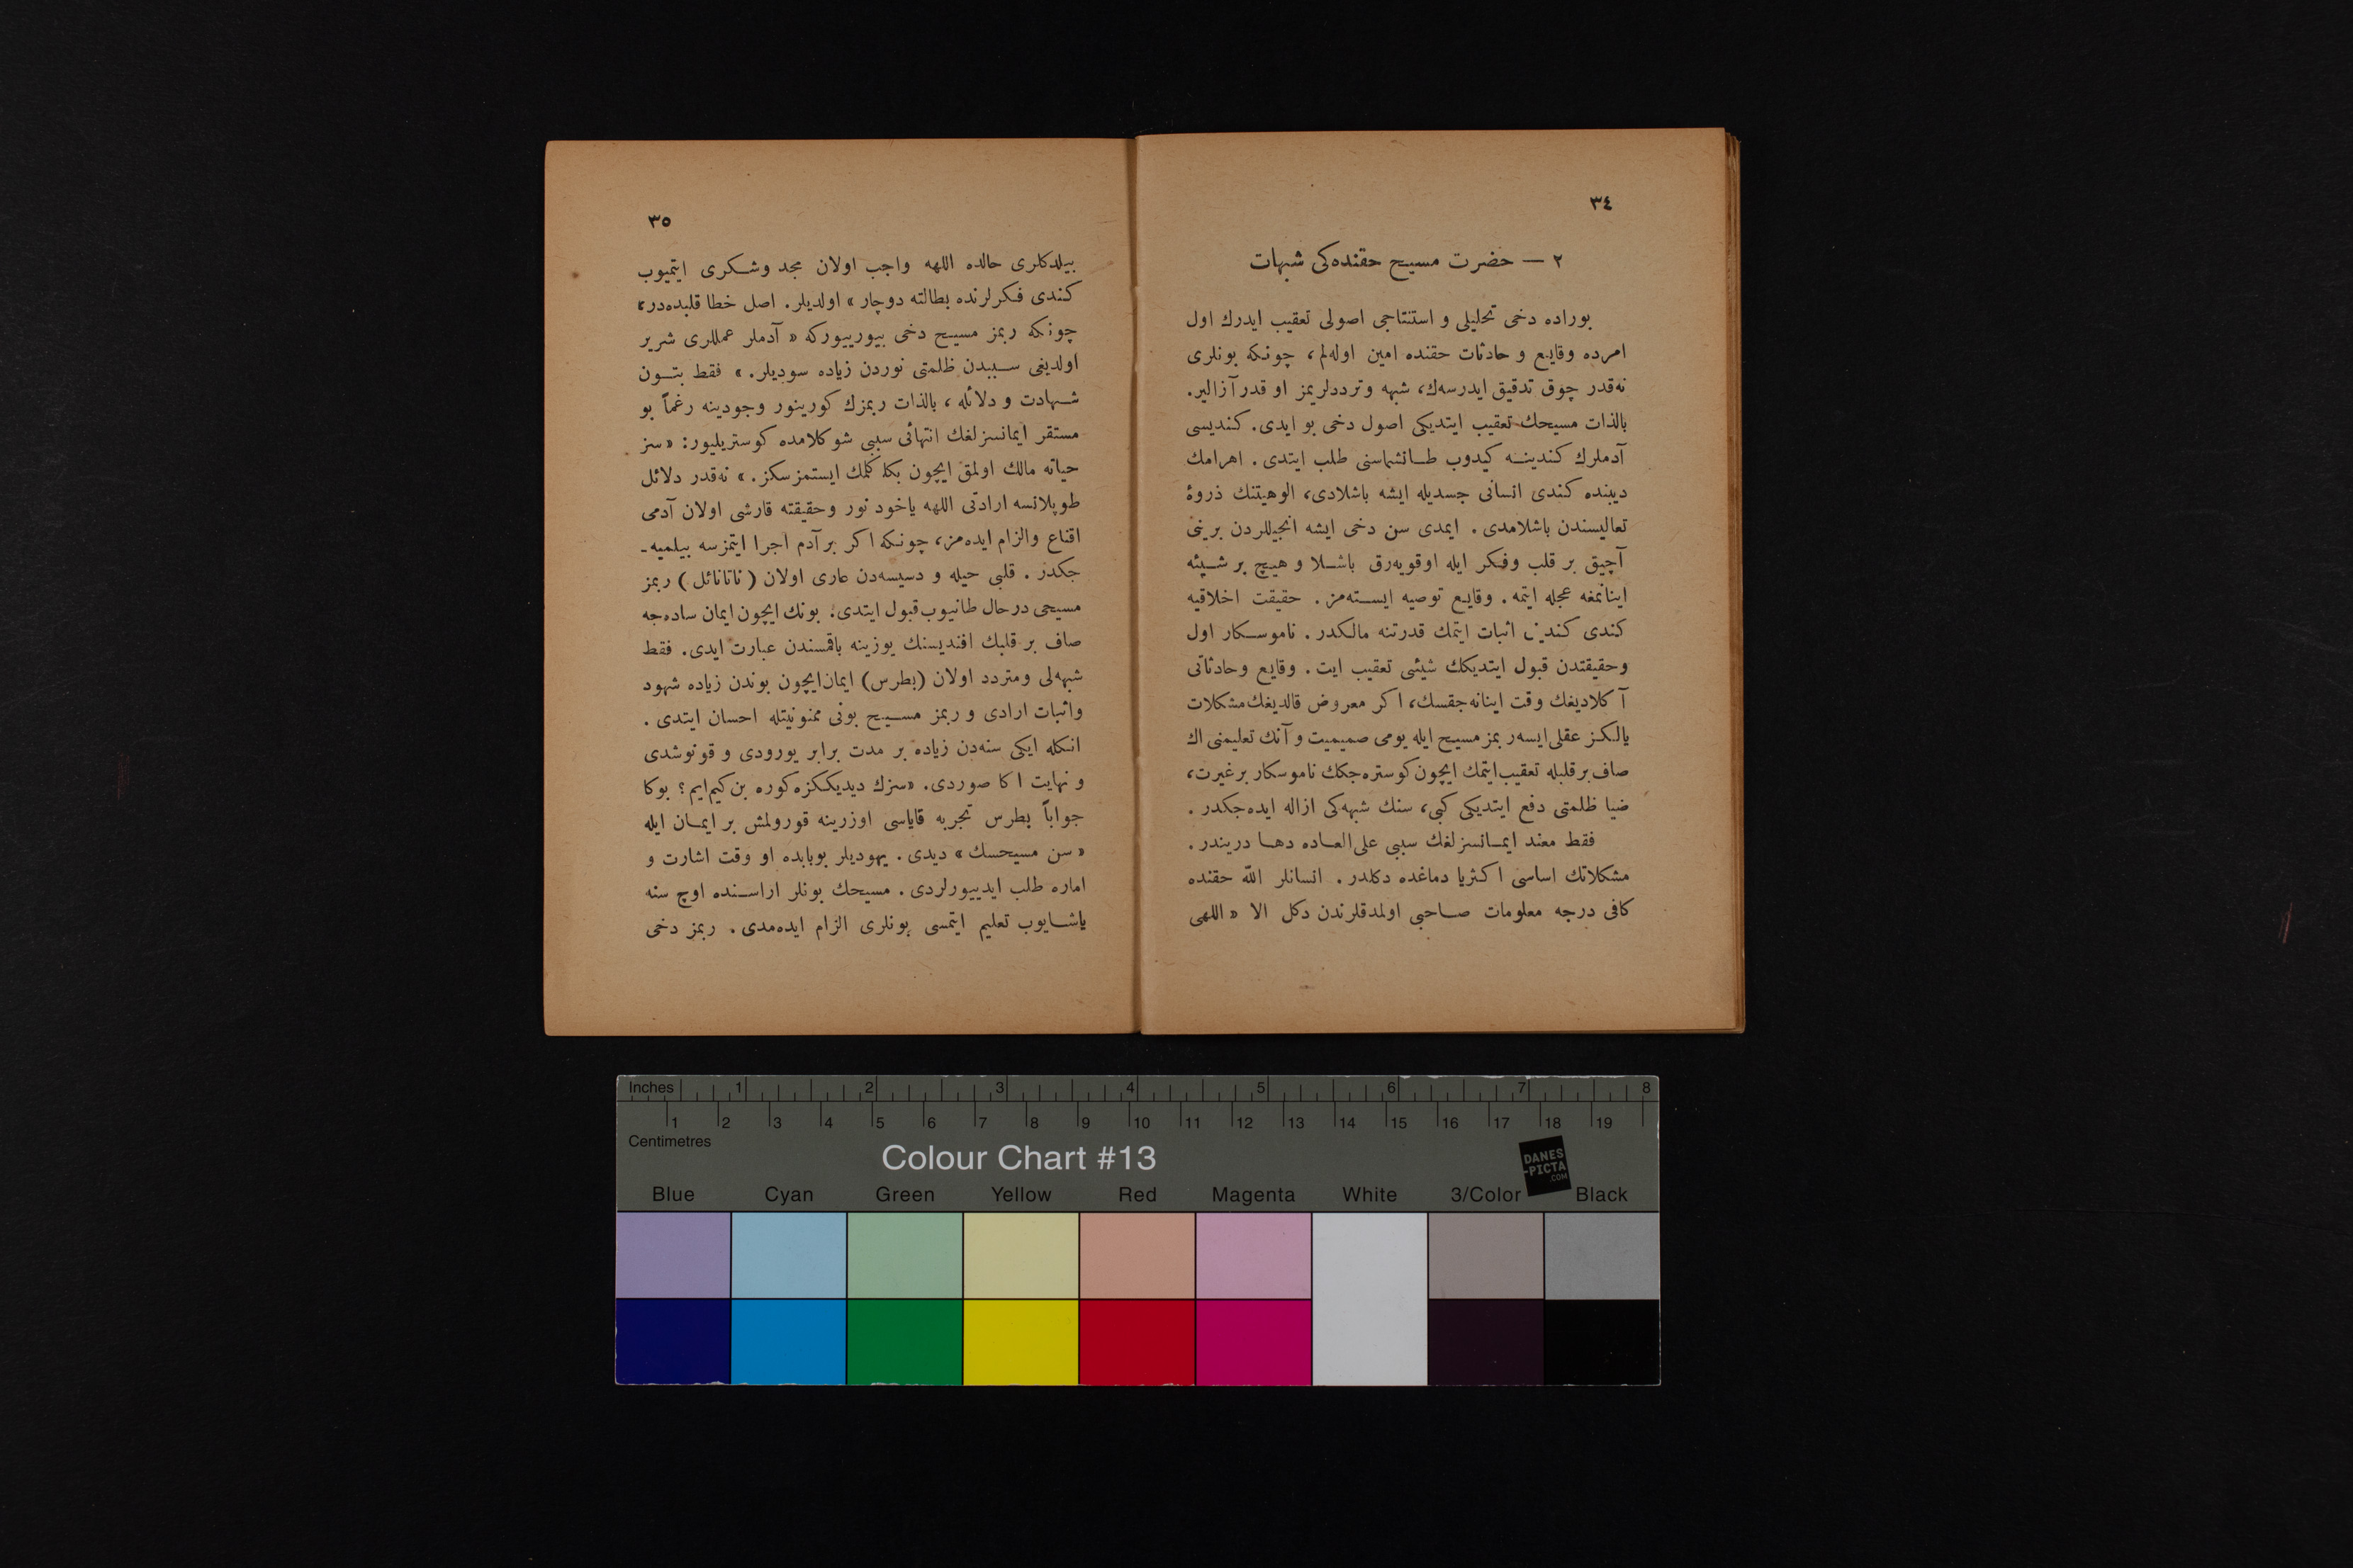 ٣٤
٢ — حضرت مسيح حقنده‌كی شبهات
بوراده دخی تحلیلی و استنتاجی اصولی تعقیب ایدرك اول
امرده وقایع و حادثات حقنده امین اوله‌لم، چونكه بونلری
نه‌قدر چوق تدقیق ایدرسه‌ك، شبهه وترددلریمز او قدر آزالیر.
بالذات مسیحك تعقیب ایتدیكی اصول دخی بو ایدی. كندیسی
آدملرك كندینه كیدوب طانشماسنی طلب ایتدی. اهرامك
دیبنده كندی انسانی جسدیله ایشه باشلادی، الوهیتنك ذروۀ
تعالیسندن باشلامدی. ایمدی سن دخی ایشه انجیللردن برینی
آچیق بر قلب وفكر ایله اوقویه‌رق باشلا و هیچ بر شیئه
اینانمغه عجله ایتمه. وقایع توصیه ایسته‌مز. حقیقت اخلاقیه
كندی كندینی اثبات ایتمك قدرتنه مالكدر. ناموسكار اول
وحقیقتدن قبول ایتدیكك شیئی تعقیب ایت. وقایع وحادثاتی
آكلادیغك وقت اینانه‌جقسك، اكر معروض قالدیغك مشكلات
یالكز عقلی ایسه ربمز مسیح ایله یومی صمیمیت و آنك تعلیمنی اك
صاف بر قلبله تعقیب ایتمك ایچون كوستره‌جكك ناموسكار بر غیرت،
ضیا ظلمتی دفع ایتدیكی كبی، سنك شبهه‌كی ازاله ایده‌جكدر.
فقط معند ایمانسزلغك سببی علی‌العاده دها دریندر.
مشكلاتك اساسی اكثریا دماغده دكلدر. انسانلر الله حقنده
كافی درجه معلومات صاحبی اولمدقلرندن دكل الا « اللهی
٣٥
بیلدكلری حالده اللهه واجب اولان مجد وشكری ایتمیوب
كندی فكرلرنده بطالته دوچار » اولدیلر. اصل خطا قلبده‌در؛
چونكه ربمز مسیح دخی بیورییوركه « آدملر عمللری شریر
اولدیغی سببدن ظلمتی نوردن زیاده سودیلر. » فقط بتون
شهادت و دلائله، بالذات ربمزك كورینور وجودینه رغماً بو
مستقر ایمانسزلغك انتهائی سببی شو كلامده كوستریلیور: « سز
حیاته مالك اولمق ایچون بكا كلمك ایستمزسكز. » نه‌قدر دلائل
طوپلانسه ارادتی اللهه یاخود نور وحقیقته قارشی اولان آدمی
اقناع والزام ایده‌مز، چونكه اكر بر آدم اجرا ایتمزسه بیلمیه-
جكدر. قلبی حیله و دسیسه‌دن عاری اولان ( ناتانائل ) ربمز
مسیحی درحال طانیوب قبول ایتدی. بونك ایچون ایمان ساده‌جه
صاف بر قلبك افندیسنك یوزینه باقمسندن عبارت ایدی. فقط
شبهه‌لی ومتردد اولان (بطرس) ایمان ایچون بوندن زیاده شهود
واثبات ارادی و ربمز مسیح بونی ممنونیتله احسان ایتدی.
انكله ایكی سنه‌دن زیاده بر مدت برابر یورودی و قونوشدی
و نهایت اكا صوردی. « سزك دیدیككزه كوره بن كیم ایم؟ بوكا
جواباً بطرس تجربه قایاسی اوزرینه قورولمش بر ایمان ایله
« سن مسیحسك » دیدی. یهودیلر بوبابده او وقت اشارت و
اماره طلب ایدییورلردی. مسیحك بونلر اراسنده اوچ سنه
یاشایوب تعلیم ایتمسی بونلری الزام ایده‌مدی. ربمز دخی
Inches 1 2 3 4 5 6 7 8
1 2 3 4 5 6 7 8 9 10 11 12 13 14 15 16 17 18 19
Centimetres
Colour Chart #13
DANES
-PICTA
.COM
Blue Cyan Green Yellow Red Magenta White 3/Color Black